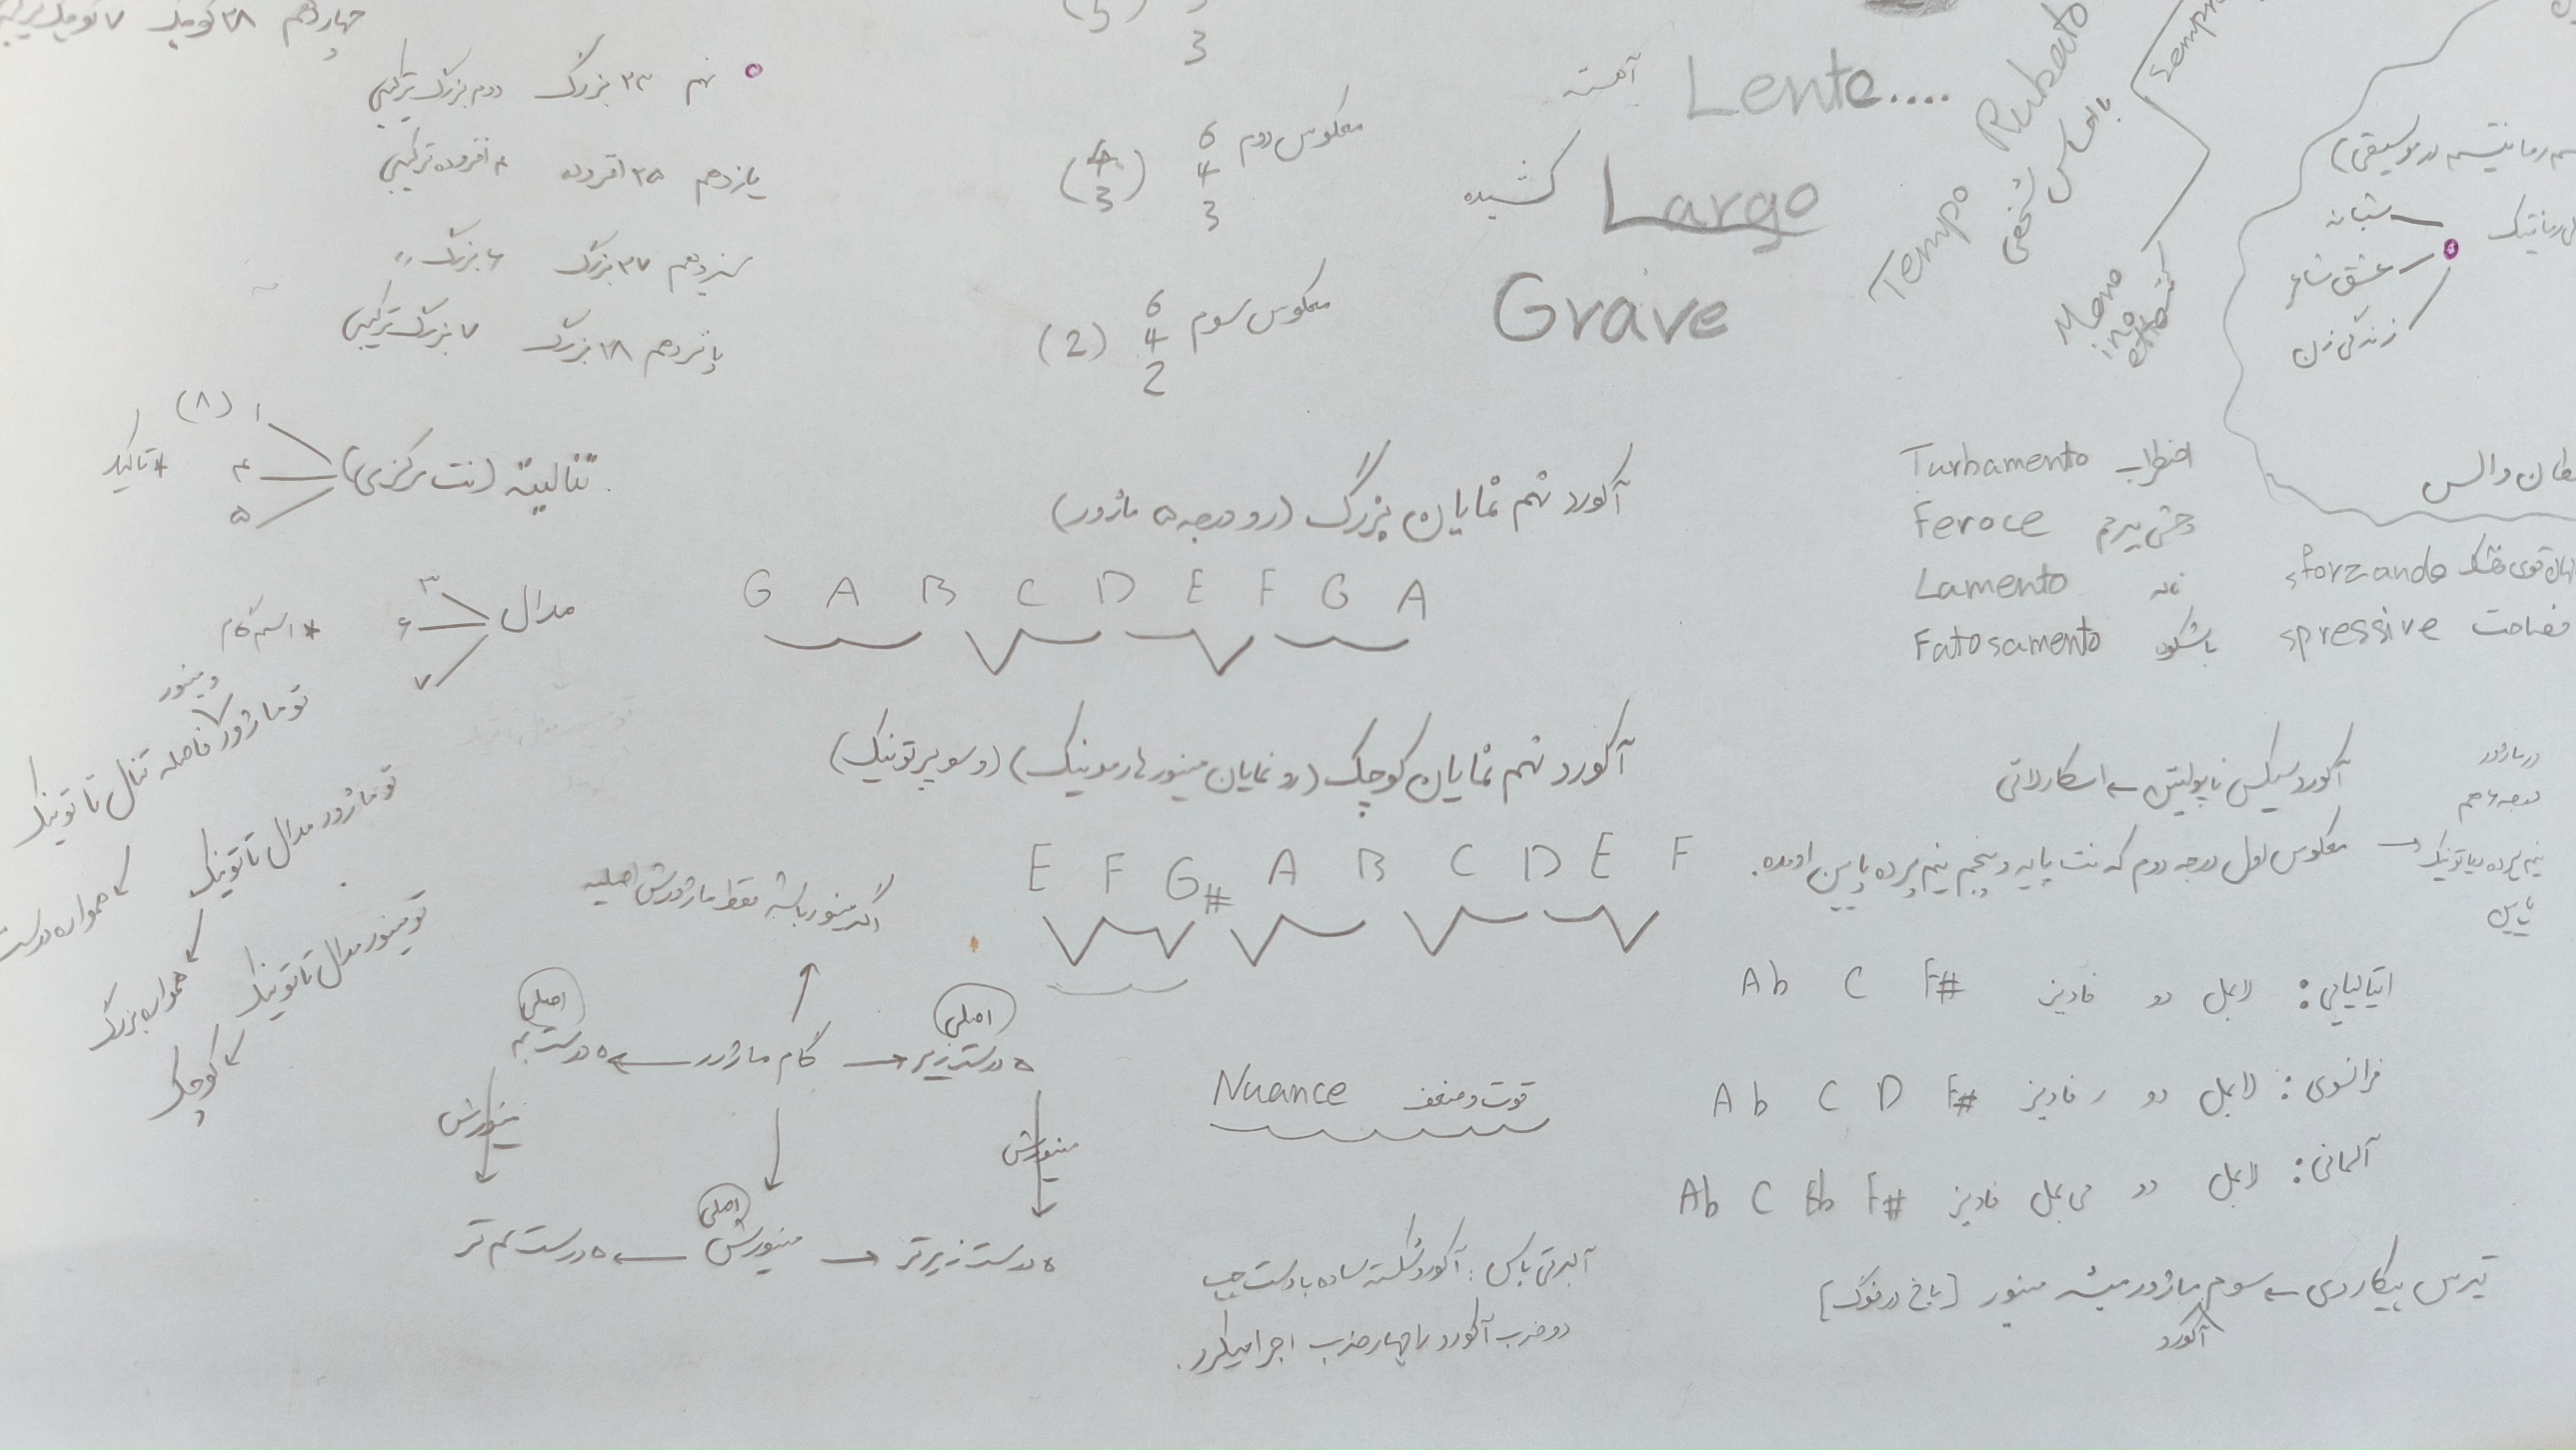 چهاردهم ۲۸ کوچک ۷ کوچک
نهم ۲۳ بزرگ دوم بزرگ ترکیبی
یازدهم ۲۵ افزوده ۴ افزوده ترکیبی
سیزدهم ۲۷ بزرگ ۶ بزرگ "
پانزدهم ۲۸ بزرگ ۷ بزرگ ترکیبی
(5)
3
معکوس دوم 6 4 3 (4 3)
معکوس سوم 6 4 2 (2)
Lento.... آهسته
Largo کشیده
Grave
Tempo Rubato
با احساس شخصی
Meno
ino
شبانه
عشق شاعر
زندگی زن
Turbamento اضطراب
Feroce وحشی بیرحم
Lamento ناله
Fatosamento باشکوه
sforzando
spressive فصاحت
تنالیته (نت مرکزی) ۱ (۸) ۴ ۵ *تاکید
مدال ۳ ۶ ۷ *اسم گام
آکورد نهم نمایان بزرگ (رو درجه ۵ ماژور)
G A B C D E F G A
آکورد نهم نمایان کوچک (رو نمایان مینور هارمونیک) (رو سوپرتونیک)
E F G# A B C D E F
تو ماژور و مینور فاصله تنال تا تونیک
همواره درست
تو ماژور مدال تا تونیک
همواره بزرگ
تو مینور مدال تا تونیک
کوچک
اگر مینور باشه فقط ماژورش اصلیه
اصلی
اصلی
۵ درست زیر → گام ماژور ← ۵ درست بم
مینورش
مینورش
اصلی
۵ درست زیرتر → مینورش ← ۵ درست بم تر
Nuance قوت و ضعف
آلبرتی باس: آکورد شکسته ساده با دست چپ
دو ضرب آکورد با چهار ضرب اجرا میگردد.
آکورد سیکس ناپولیتن ← اسکارلاتی
معکوس اول درجه دوم که نت پایه و پنجم نیم پرده پایین اومده.
در ماژور
درجه ۶ هم
نیم پرده میاد
پایین
ایتالیایی: لابمل دو فادیز Ab C F#
فرانسوی: لابمل دو ر فادیز Ab C D F#
آلمانی: لابمل دو می بمل فادیز Ab C Eb F#
تیرس پیکاردی ← سوم ماژور میشه مینور [باخ در فوگ]
آکورد